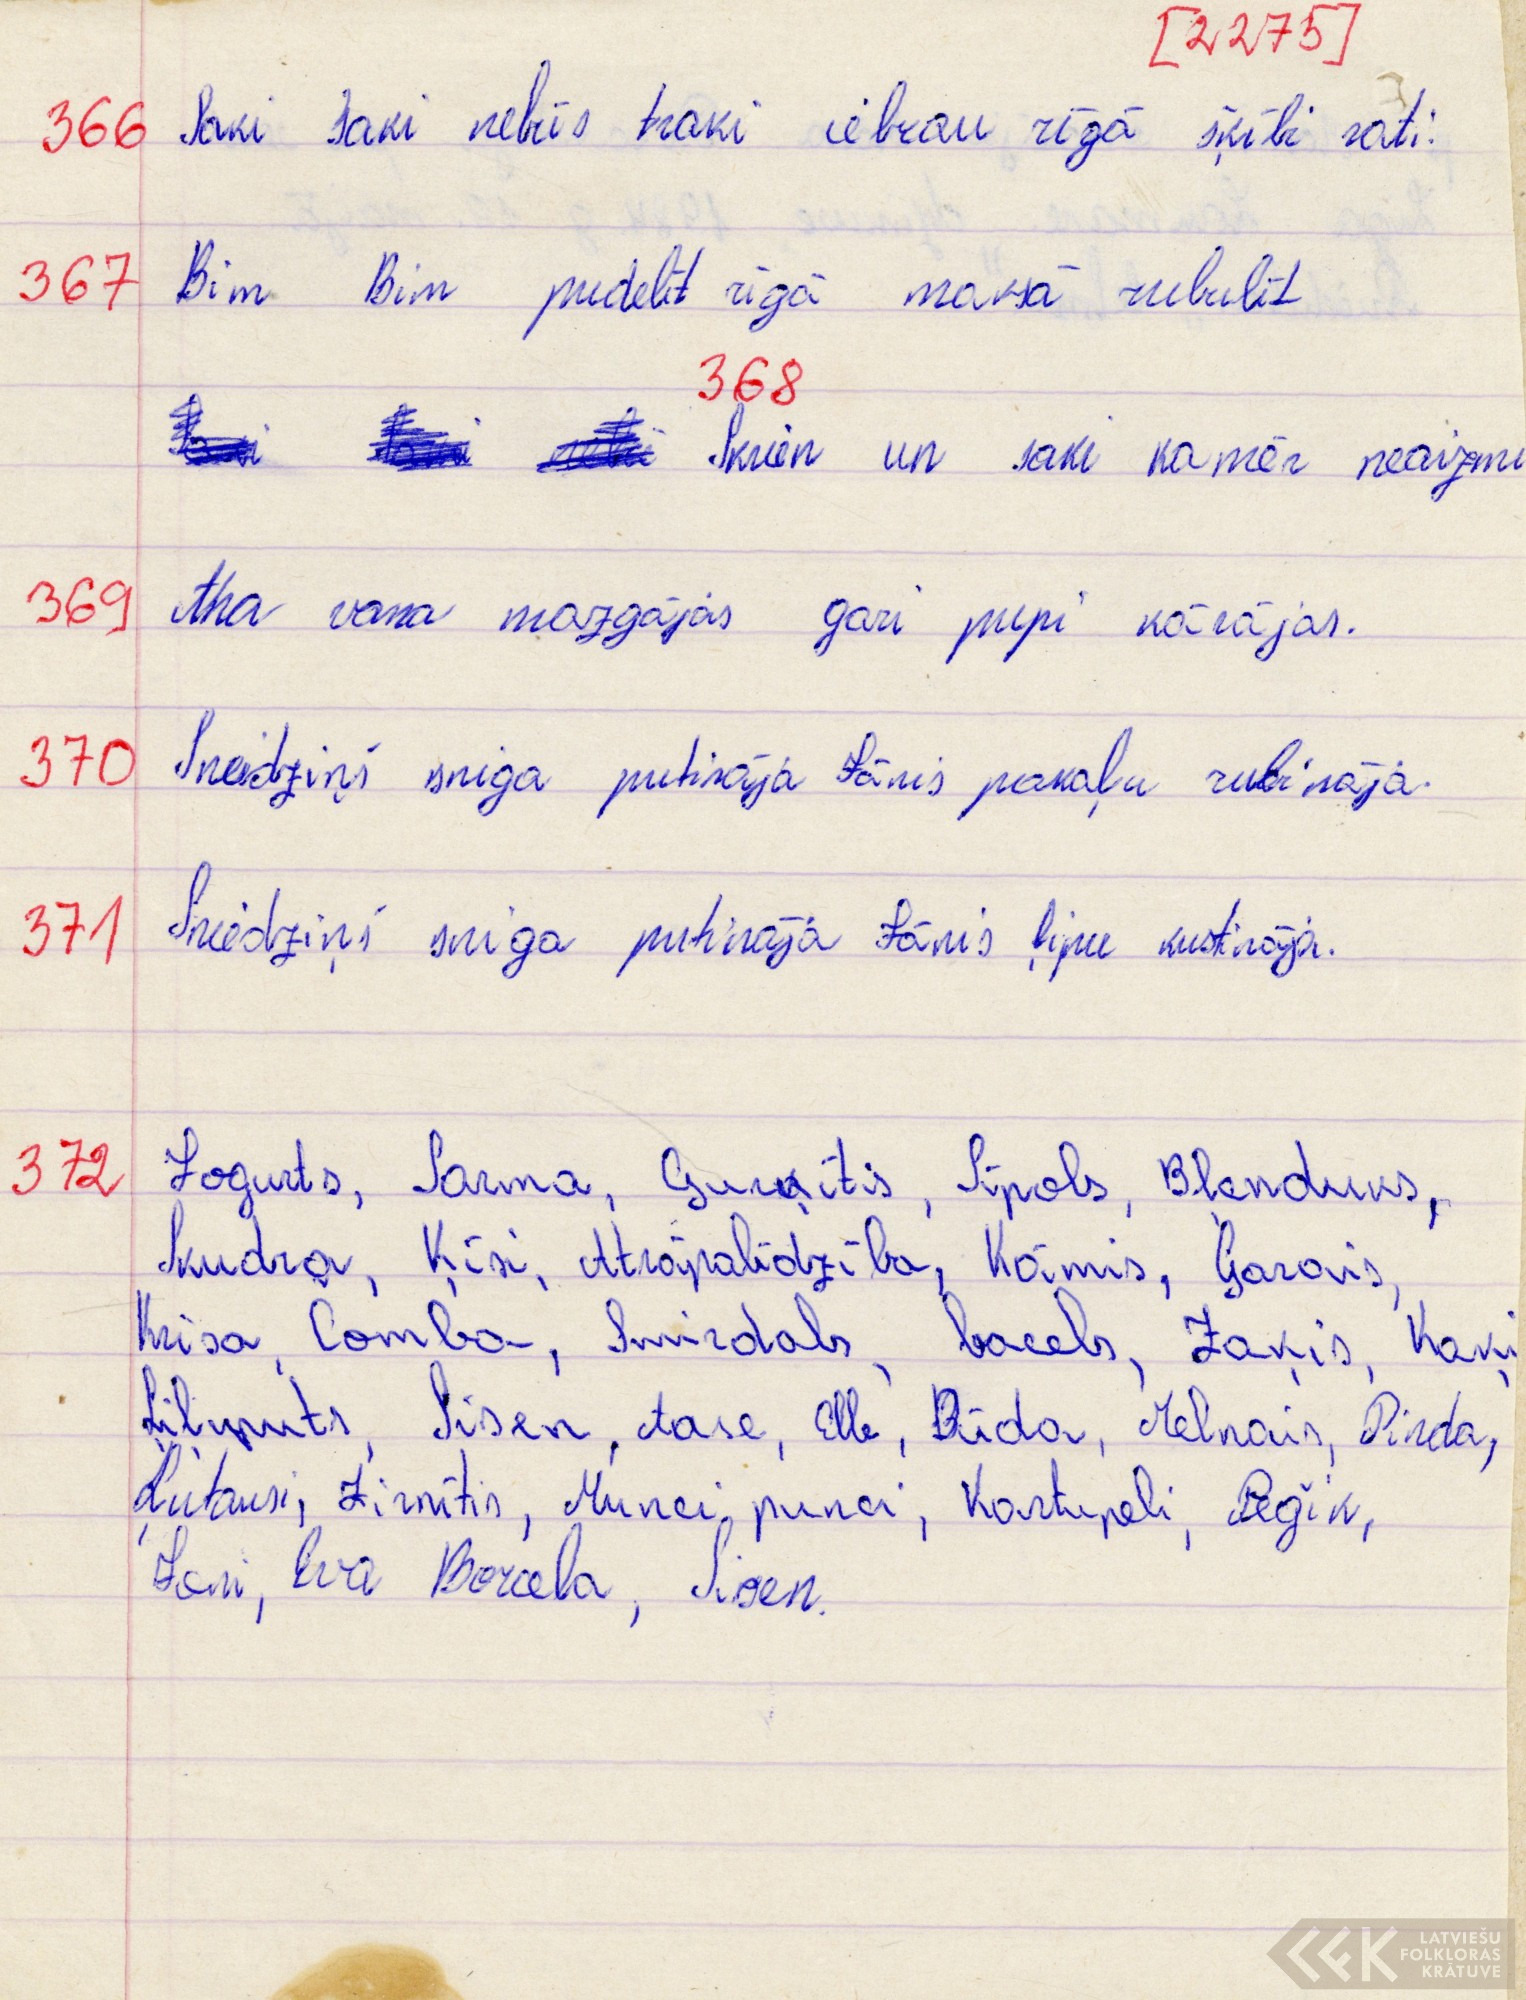 [2275]
366 Saki saki nebūs traki iebrau rīgā šķībi rati.
367 Bim Bim pudelīt rīgā maksā rubulīt
368
Skrien un saki kamēr neaizmi
369 Aha vana mazgājās gari pupi kārājas.
370 Sniedziņš sniga putināja Jānis pakaļu rubināja.
371 Sniedziņš sniga putināja Jānis ļipu kustināja.
372 Jogurts, Sarma, Gurķītis, Sīpols, Blenduks,
Skudra, Ķīsi, Ātrāpalīdzība, Kāmis, Garais,
Krisa, Comba, Smirdals, bacels, Zaķis, Kaķi
Liliputs, Sisen, Aase, Elle, Būda, Melnais, Pirda,
Lūtausi, Zirnītis, Munci, punci, Kartupeli, Pegik,
Jani, Eva Borcela, Sisen.
LATVIEŠU
FOLKLORAS
KRĀTUVE